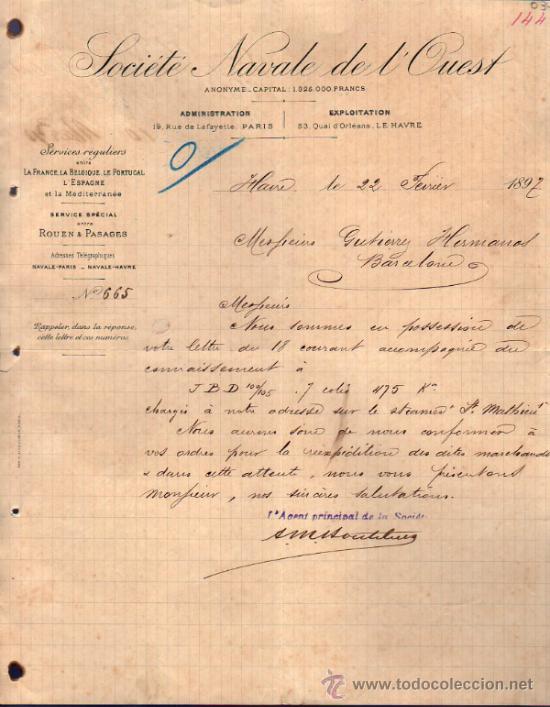 03
144
Société Navale de l'Ouest
ANONYME _ CAPITAL: 1.325.000 FRANCS
ADMINISTRATION
19, Rue de Lafayette, PARIS
EXPLOITATION
53, Quai d'Orléans, LE HAVRE
Services réguliers
entre
LA FRANCE, LA BELGIQUE, LE PORTUGAL
L'ESPAGNE
et la Méditerranée
SERVICE SPÉCIAL
entre
ROUEN & PASAGES
Adresses Télégraphiques
NAVALE-PARIS _ NAVALE-HAVRE
No 665
Rappeler, dans la réponse,
cette lettre et ces numéros.
Havre, le 22 Février 1897
Messieurs Gutierrez Hermanos
Barcelone
Messieurs
Nous sommes en possession de
votre lettre du 18 courant accompagnée du
connaissement à
J.B.D 100/105. 7 colis 475 Ko
chargés à notre adresse sur le steamer St Mathieu
Nous aurons soin de nous conformer à
vos ordres pour la réexpédition des dites marchandises
& dans cette attente, nous vous présentons
Monsieur, nos sincères salutations.
L'Agent principal de la Société
todocoleccion
www.todocoleccion.net